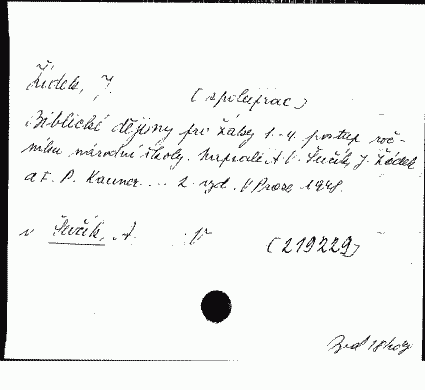 Žídek, J.
(spoluprac)
Biblické dějiny pro žáky 1.-4. postup. roč-
níku národní školy. Napsali A. Ševčík, J. Žídek
a F. P. Kauner... 2. vyd. V Praze 1948.
v Ševčík, A.
(219229)